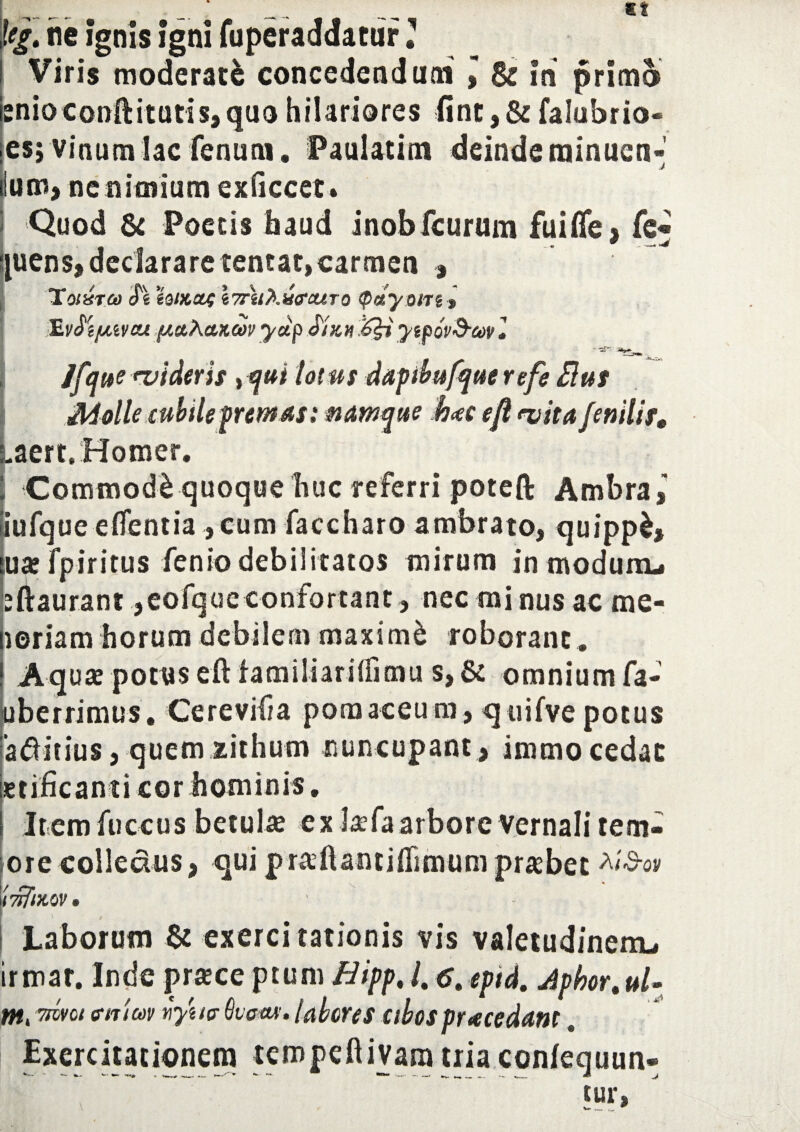 Et
leg. ne ignis igni ſuperaddatur.
Viris moderatè concedendum, & in primò
ſenio conſtitutis, quo hilariores ſint, & ſalubrio-
es; Vinum lac ſenum. Paulatim deinde minuen-
dum, ne nimium exſiccet.
Quod & Poetis haud inobſcurum fuiſſe, ſe-
quens, declarare tentat, carmen,
Τοιȣτω δὲ ἔοικας ἐπειλȣσαιτο φάγοιτε,
Ευδέμεναι μαλακῶν γὰρ δίκη ἐϛὶ γερόνθων.
Iſque videris, qui lotus dapibuſque refe ctus
Molle cubile premas: namque hæc eſt vita ſenilis.
Laert. Homer.
Commodè quoque huc referri poteſt Ambra,
iuſque eſſentia, cum ſaccharo ambrato, quippè,
uæ ſpiritus ſenio debilitatos mirum in modum
eſtaurant, eoſque confortant, nec mi nus ac me-
noriam horum debilem maximè roborant.
Aquæ potus eſt familiariſſimu s, & omnium ſa-
uberrimus. Cereviſia pomaceum, quiſve potus
actitius, quem zithum nuncupant, immo cedat
ætificanti cor hominis.
Item ſuccus betulæ ex læſa arbore vernali tem-
ore collectus, qui præſtantiſſimum præbet λίθον
ιπῖικον.
Laborum & exercitationis vis valetudinem
irmat. Inde præce ptum Hipp. l. 6. epid. Aphor. ul-
m. πόνοι σιτίων ηγεισθυσαν. labores cibos præcedant.
Exercitationem tempeſtivam tria conſequun-
tur,